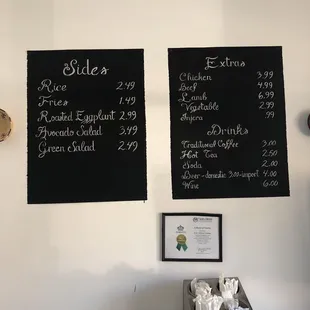 Sides
Rice 2.49
Fries 1.49
Roasted Eggplant 2.99
Avocado Salad 3.49
Green Salad 2.49
Extras
Chicken 3.99
Beef 4.99
Lamb 6.99
Vegetable 2.99
Injera .99
Drinks
Traditional Coffee 3.00
Hot Tea 2.50
Soda 2.00
Beer-domestic 3.00-import 4.00
Wine 6.00